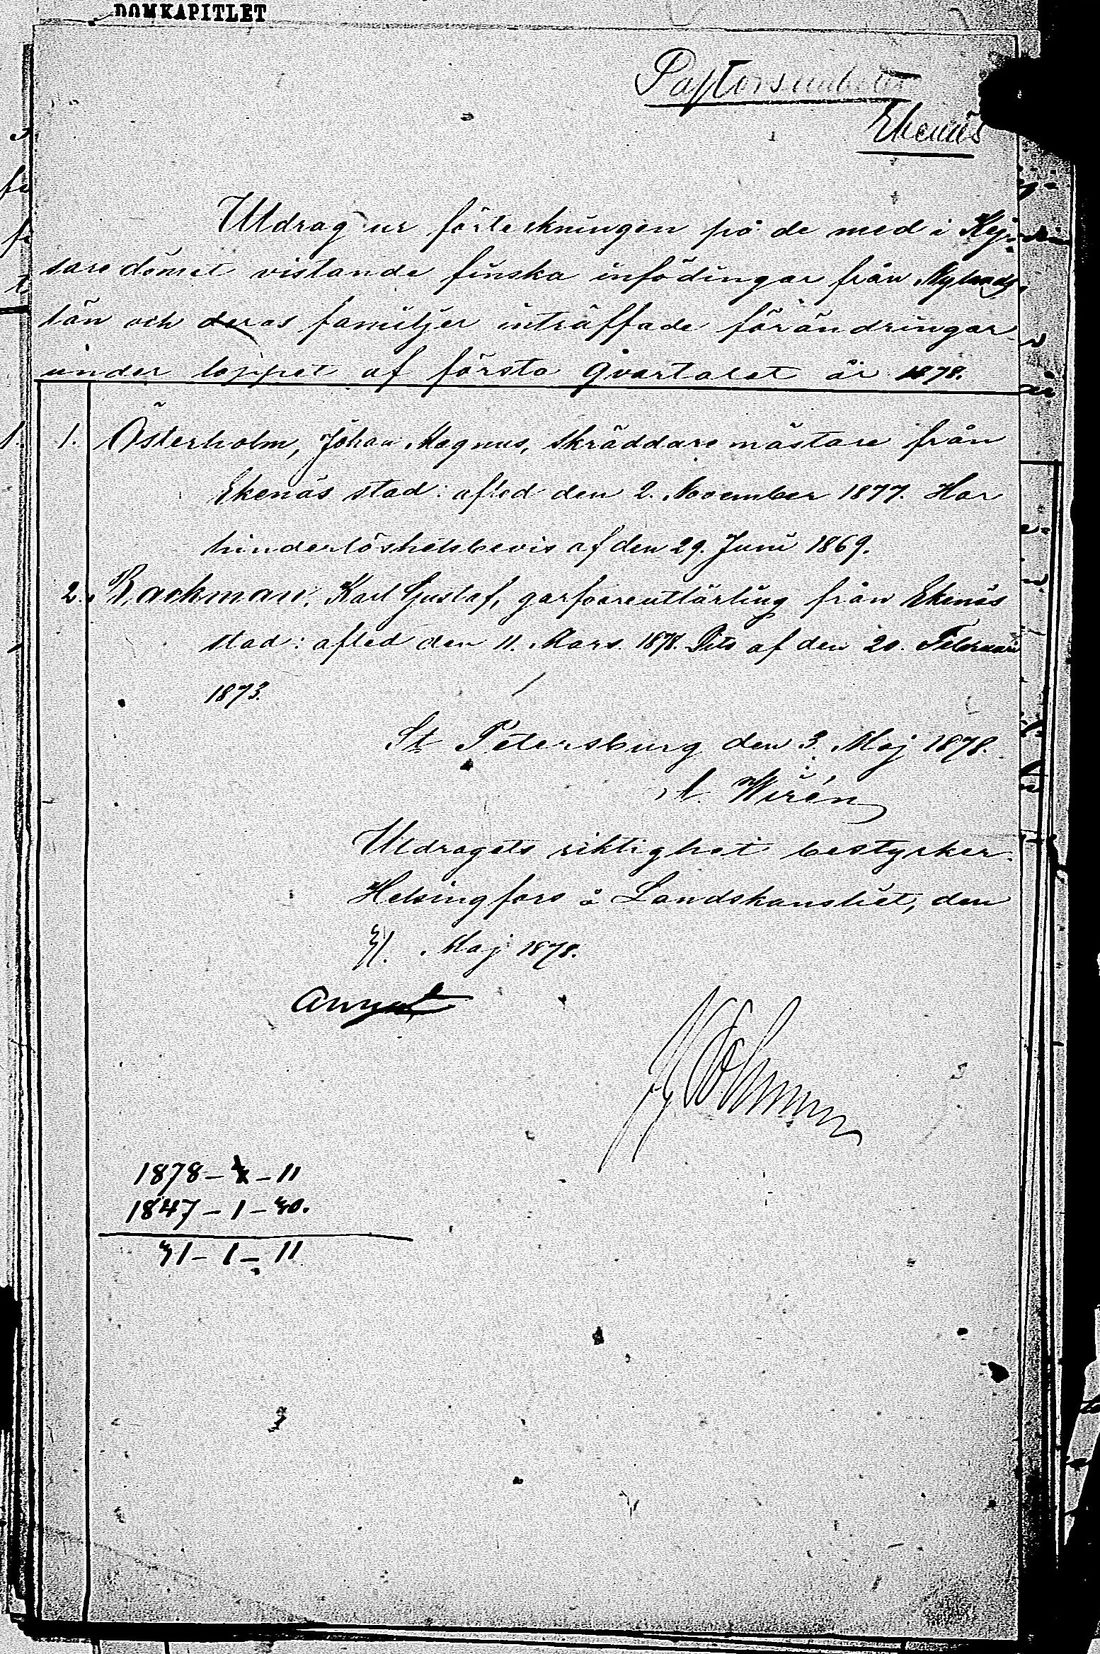 DOMKAPITLET
Pastorsembetet
Ekenäs
Utdrag ur förteckningen på de med i Kej-
saredömet vistande finska infödingar från Nylands
län och deras familjer inträffade förändringar
under loppet af första qvartalet år 1878.
1. Österholm, Johan Magnus, skräddaremästare från
Ekenäs stad: afled den 2. November 1877. Har
hinderlöshetsbevis af den 29. Juni 1869.
2. Backman, Karl Gustaf, garfvare från Ekenäs
stad: afled den 11. Mars 1878. Dito af den 20. Februari
1873.
St Petersburg den 3. Maj 1878.
Wirén
Utdragets riktighet bestyrker.
Helsingfors å Landskansliet, den
31. Maj 1878.
1878 - - 11
1847 - 1 - 30.
31 - 1 - 11